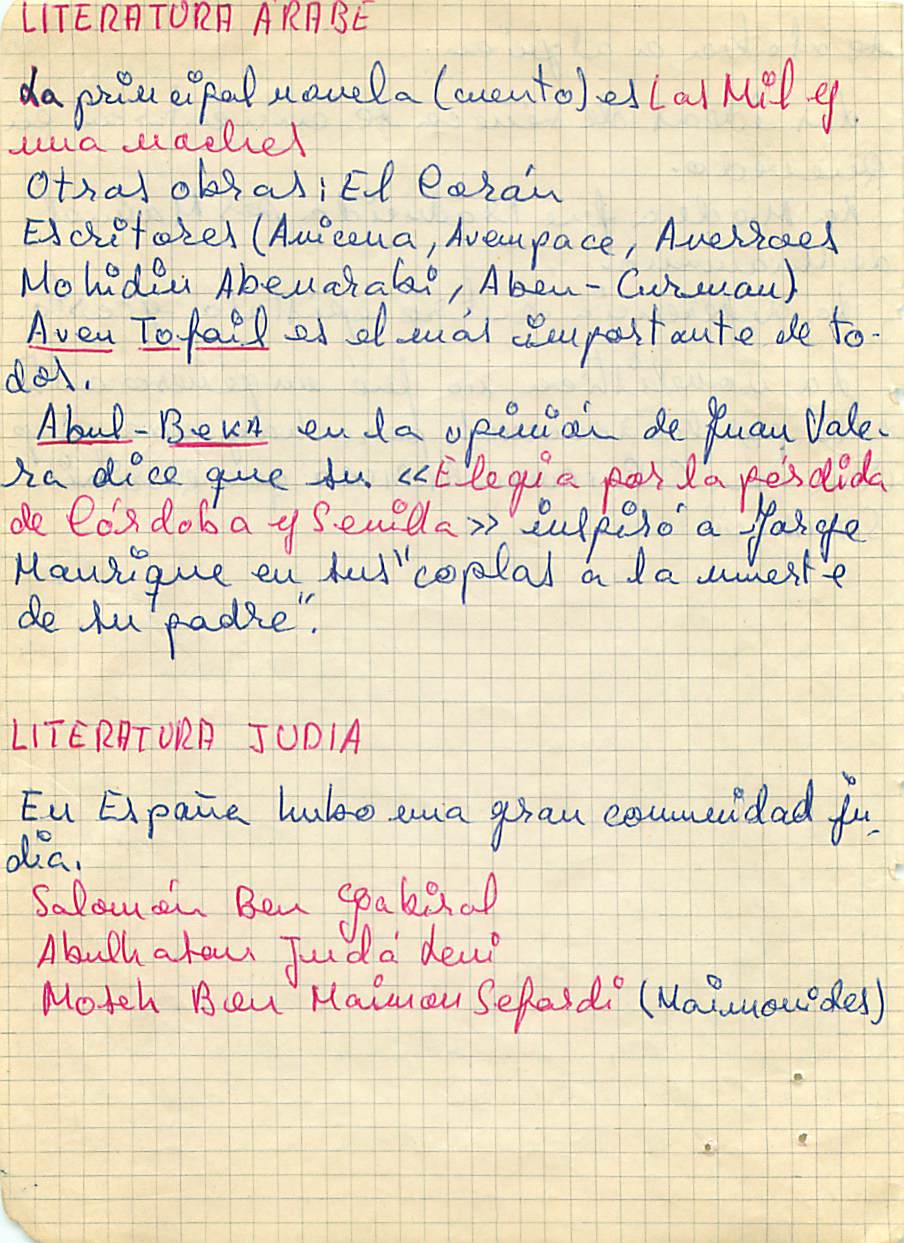 LITERATURA ÁRABE
La principal novela (cuento) es Las Mil y
una noches
Otras obras: El Corán
Escritores (Avicena, Avempace, Averroes
Mohidin Abenarabi, Aben-Curman)
Aven Tofail es el más importante de to-
dos.
Abul-Beka en la opinión de Juan Vale-
ra dice que su «Elegia por la pérdida
de Córdoba y Sevilla» inspiró a Jorge
Manrique en sus "coplas a la muerte
de su padre".
LITERATURA JUDIA
En España hubo una gran comunidad ju-
dia.
Salomón Ben Gabirol
Abulhatan Judá Levi
Moseh Ben Maimon Sefardi (Maimonides)